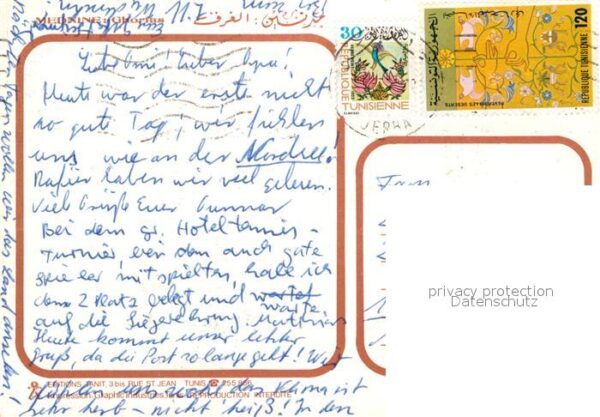 MEDNINE : Ghorfas
مدنين : الغرف
Liebe Omi! Lieber Opa!
Heute war der erste nicht
so gute Tag, wir fühlen
uns wie an der Nordsee!
Dafür haben wir viel gelesen.
Viele Grüße Euer Gunnar
Bei dem gr. Hoteltennis-
turnier, bei dem auch gute
Spieler mitspielten, habe ich
den 2 Platz belegt und
warte
auf die Siegerehrung.
Heute kommt unser letzter
Gruß, da die Post so lange geht! Wir
fühlen uns wohl, das Klima ist
sehr herb - nicht heiß! In den
nächsten Tagen wollen wir das Land ansehen!
30
REPUBLIQUE
TUNISIENNE
الجمهورية التونسية
REPUBLIQUE TUNISIENNE
120
DJERBA
Fam
privacy protection
Datenschutz
EDITIONS TANIT, 3 bis RUE ST JEAN TUNIS ☎ 255.836
Impression Graphic Industries REPRODUCTION INTERDITE